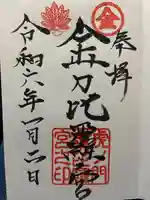 金
奉拝
金刀比羅宮
令和六年一月 日